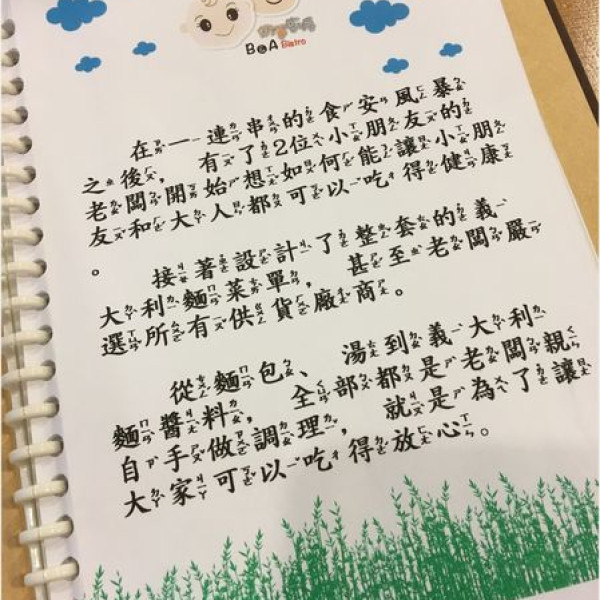 B&A Bistro
在一連串的食安風暴
之後，有了2位小朋友的
老闆開始想如何能讓小朋
友和大人都可以吃得健康
。
接著設計了整套的義
大利麵菜單，甚至老闆嚴
選所有供貨廠商。
從麵包、湯到義大利
麵醬料，全部都是老闆親
自手做調理，就是為了讓
大家可以吃得放心。